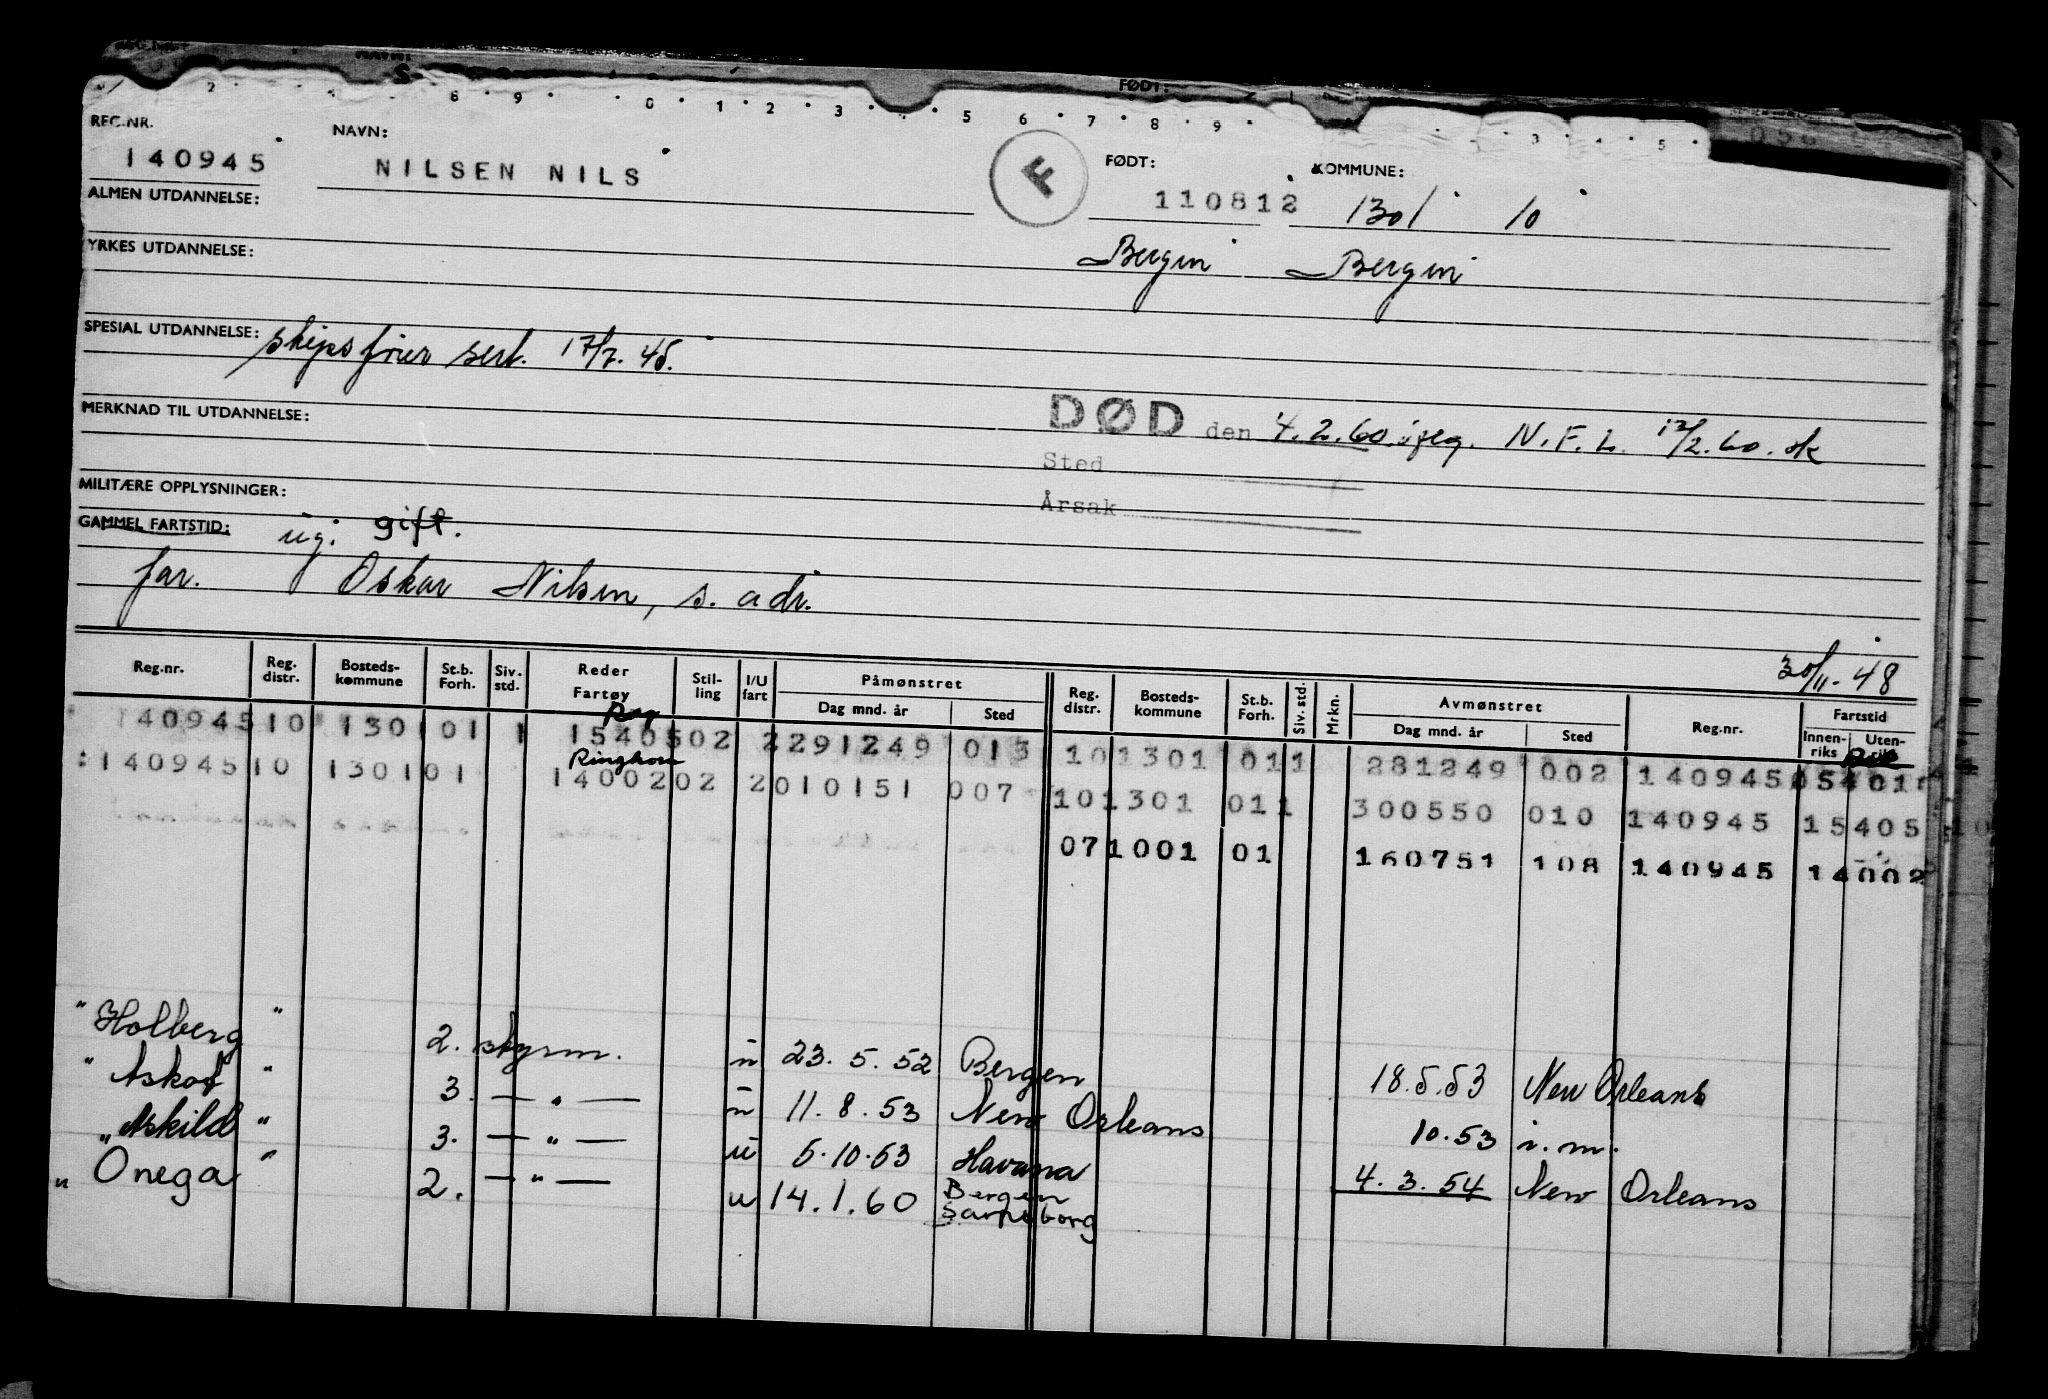 NAVN:
FØDT:
2 8 9 0 1 2 3 5 6 7 8 9 3 4 5
REG.NR. NAVN: F FØDT: KOMMUNE:
140945 NILSEN NILS 110812 1301 10
ALMEN UTDANNELSE:
YRKES UTDANNELSE: Bergen Bergen
SPESIAL UTDANNELSE: skipsfører sert. 17/7. 45.
MERKNAD TIL UTDANNELSE:
DØD den 4.2.60. N.F.L. 12/2.60. sk
Sted
Årsak
MILITÆRE OPPLYSNINGER:
GAMMEL FARTSTID: ug: gift.
far. Oskar Nilsen, s. adr.
30/11-48
Reg.nr. Reg. distr. Bosteds-kommune St.b. Forh. Siv. std. Reder Fartøy Stil-ling I/U fart Påmønstret Dag mnd. år Sted Reg. distr. Bosteds-kommune St.b. Forh. Siv. std. Mrkn. Avmønstret Dag mnd. år Sted Reg.nr. Fartstid Innen-riks Uten-riks
140945 10 1301 01 1 15405 02 2 291249 013 10 1301 01 1 281249 002 140945
Ringhorn
140945 10 1301 01 14002 02 2 010151 007 10 1301 01 1 300550 010 140945 15405
07 1001 01 160751 108 140945 14002
"Holberg" 2. styrm. u 23.5.52 Bergen 18.5.53 New Orleans
"Askot" 3. — " — u 11.8.53 New Orleans 10.53 i.m.
"Askild" 3. — " — u 5.10.53 Havana 4.3.54 New Orleans
"Onega" 2. — " — u 14.1.60 Bergen
Sarpsborg